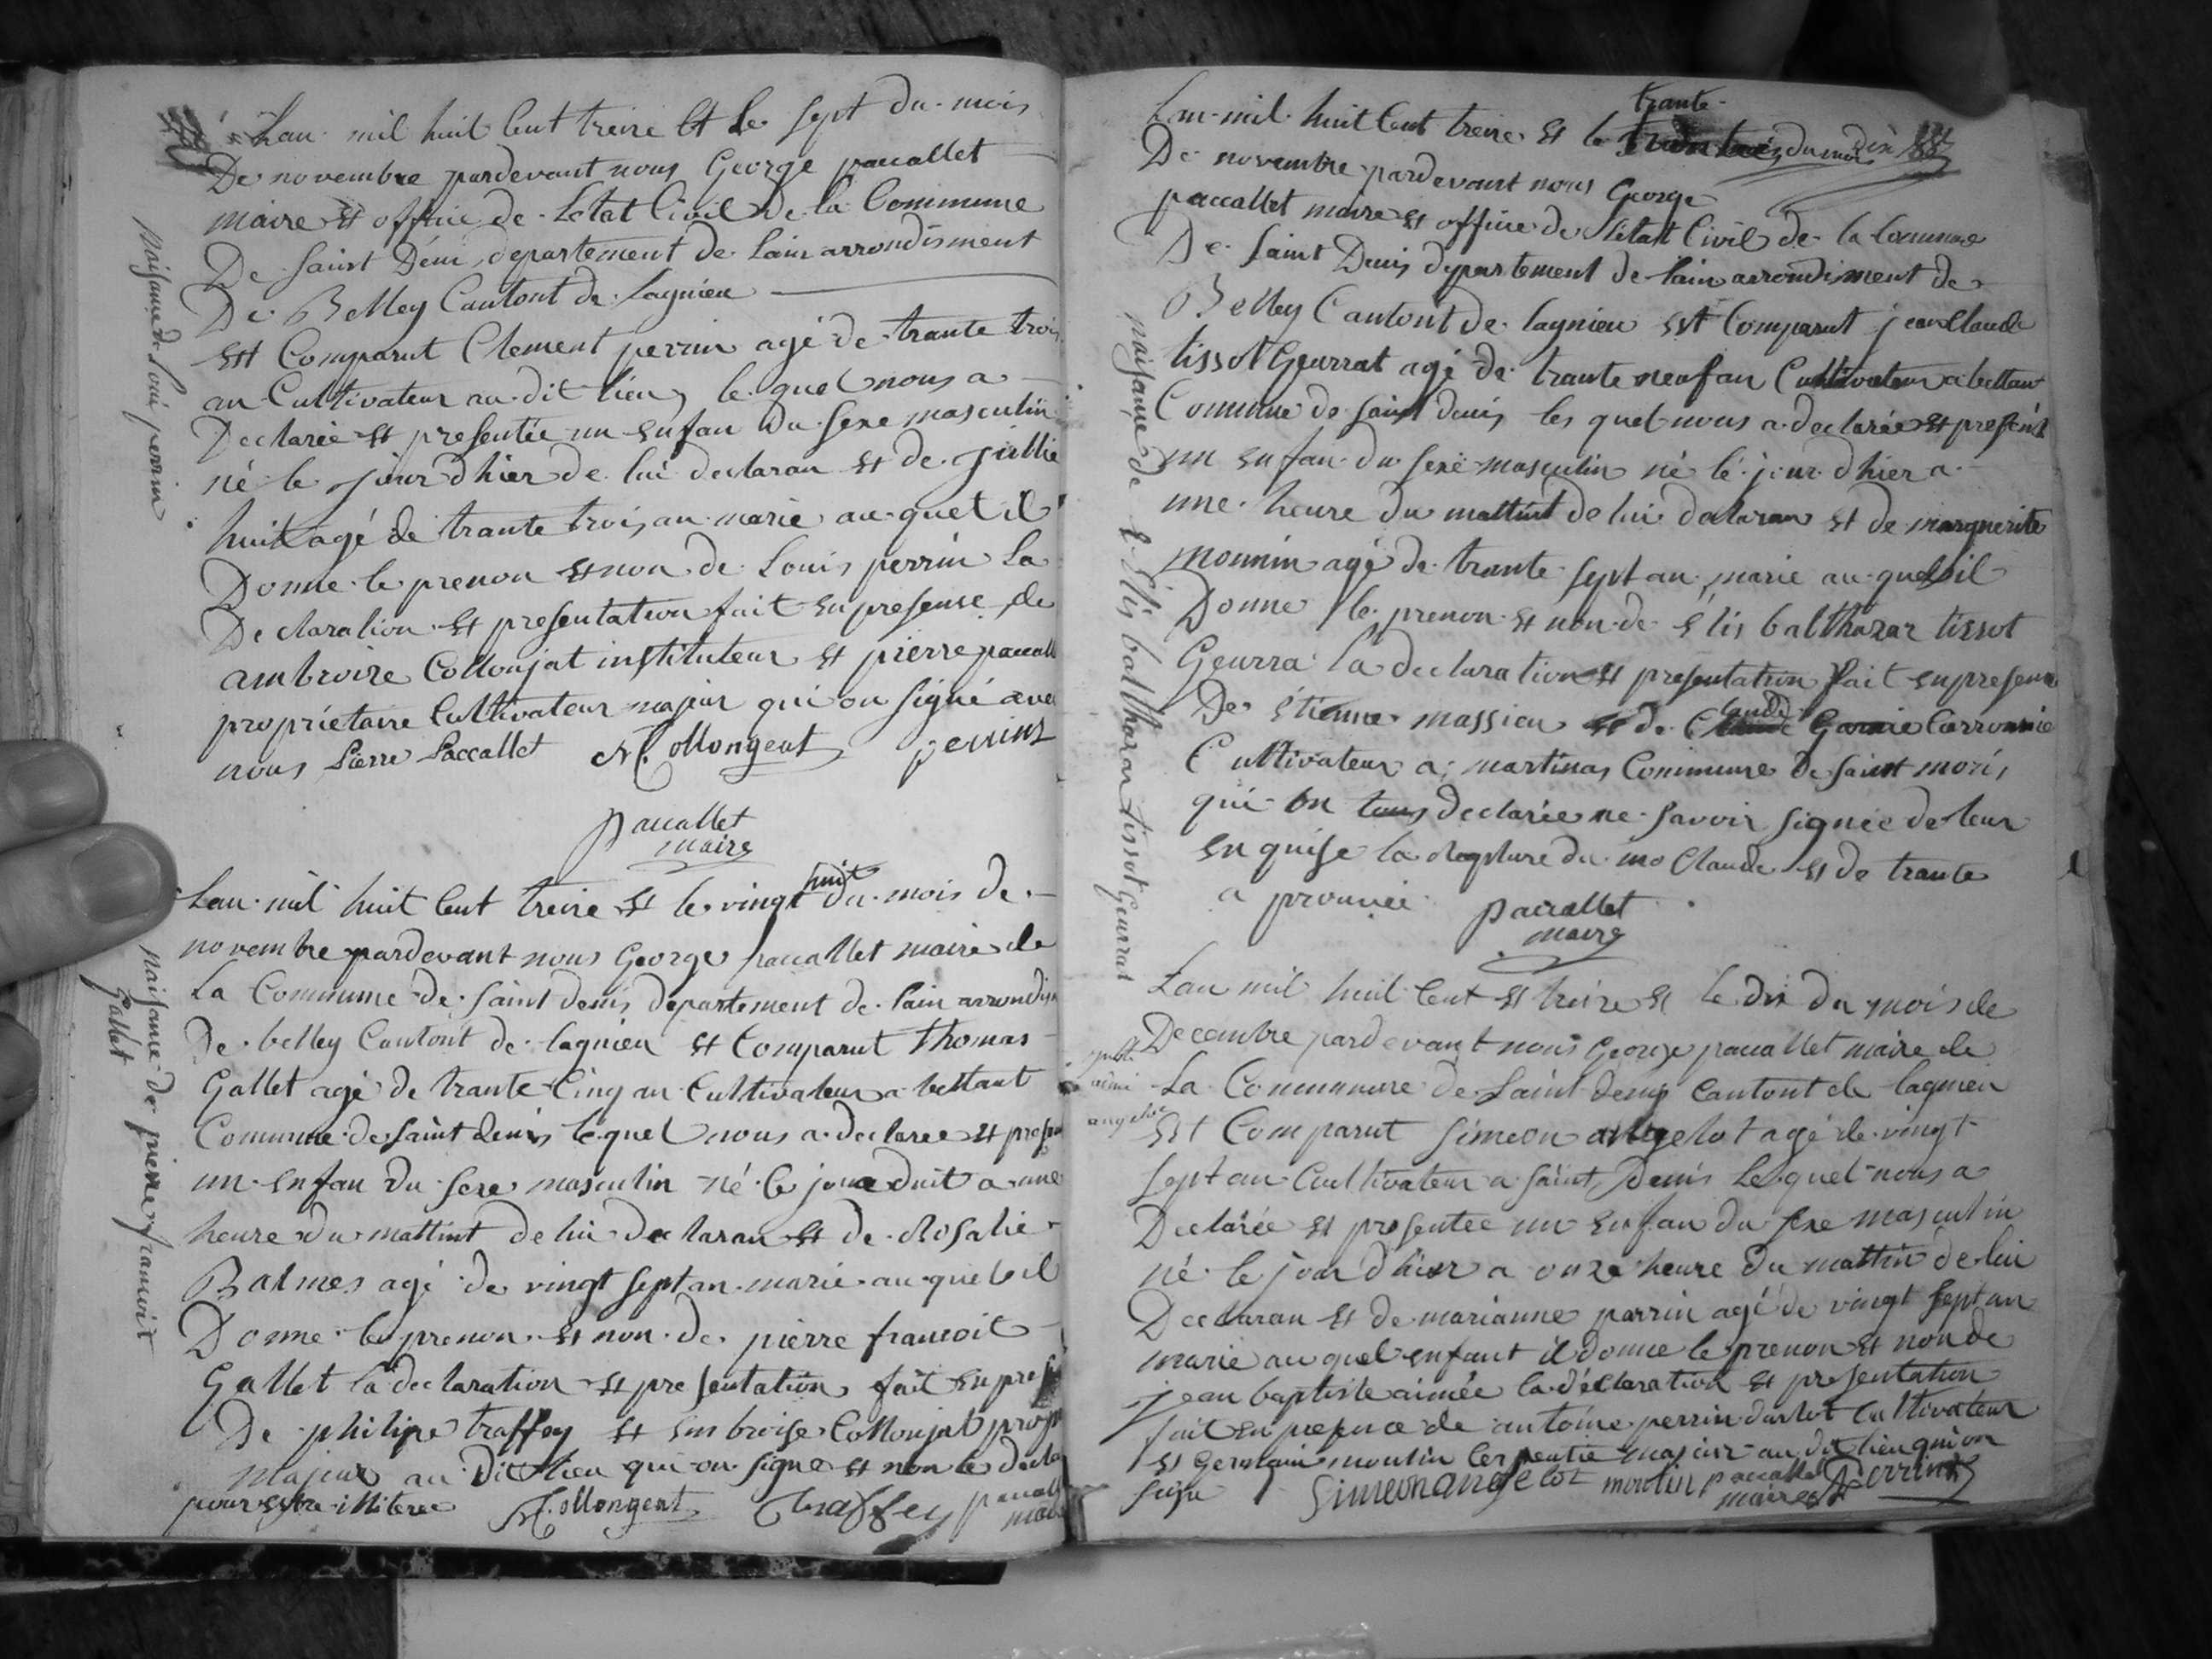 Lan mil huit Cent treize et le sept du mois
De novembre pardevant nous George paccallet
maire et office de Letat Civil De la Commune
De Saint Déni departement de Lain arrondisment
De Belley Cantont de Lagnieu
Est Comparut Clement perrin agé de trante trois
an Cultivateur au dit lieu le quel nous a
Declarée et presentée un enfan du sexe masculin
né le jour d'hier de lui declaran et de
huit agé de trante trois an marie au quel il
Donne le prenon et non de Louis perrin La
Declaration et presentation fait en presense de
ambroize Collonjat instituteur et pierre paccall
propriétaire Cultivateur majeur qui on signé avec
nous Pierre Paccallet Collongeat perrint
paccallet
maire
naisance de Loui perrin
Lan mil huit Cent treize et le vingt huit du mois de
novembre pardevant nous George paccallet maire de
La Commune de Saint denis departement de lain arrondis
De belley Cantont de lagnieu et Comparut thomas
Gallet agé de trante Cinq an Cultivateur a bettant
Commune de Saint denis le quel nous a declaree et presen
un enfan Du sexe masculin né le jour duit a une
heure du mattint de lui declaran et de Rosalie
Balmes agé de vingt sept an marie au quel il
Donne le prenon et non de pierre francoit
Gallet la declaration et presentation fait en prese
De philipe traffey et Embroise Collonjat prop
majeur au Dit lieu qui on signe et non le decla
pour estre illiteree Collongeat Traffey paccall
maire
naisance de pierre francoit
Gallet
Lan mil huit Cent treize et le trante du moi
De novembre pardevant nous George
paccallet maire et office de létat Civil de la Commune
De Saint Denis departement de lain arrondiment de
Belley Cantont de lagnieu est Comparut jean Claude
tissot Geurrat agé de trante neuf an Cultivateur a bettant
Commune de Saint denis les quel nous a declarée et presént
un enfan du sexe masculin né le jour d'hier a
une heure du mattint de lui delaran et de marguerite
monnin agé de trante sept an marie au quel il
Donne le prenon et non de Elis balthazar tissot
Geurra la declaration et presentation fait en presence
De étienne massieu et de Claude
Cultivateur a martinas Commune de Saint moris
qui on tous declarée ne savoir signée de leur
enquise la rapture du mo Claude et de trante
a prouvée paccallet
maire
naisance de Elis balthazar tissot Geurrat
Lan mil huit Cent et treize et le dix du mois de
Decembre pardevant nous George paccallet maire de
La Commune de Saint denis Cantont de lagnieu
est Comparut Simeon angelot agé de vingt
sept an Cultivateur a Saint Denis Le quel nous a
Declarée et presentee un enfan du sexe masculin
né le jour d'hier a onze heure du mattin de lui
Declaran et de marianne parrin agé de vingt sept an
marie au quel enfant il donne le prenon et non de
jean baptiste aimée la déclaration et presentation
fait en presence de antoine perrin Cultivateur
et Germain moulin majeur au dit lieu qui on
signe Simeon angelot moulin paccallet Perrint
maire